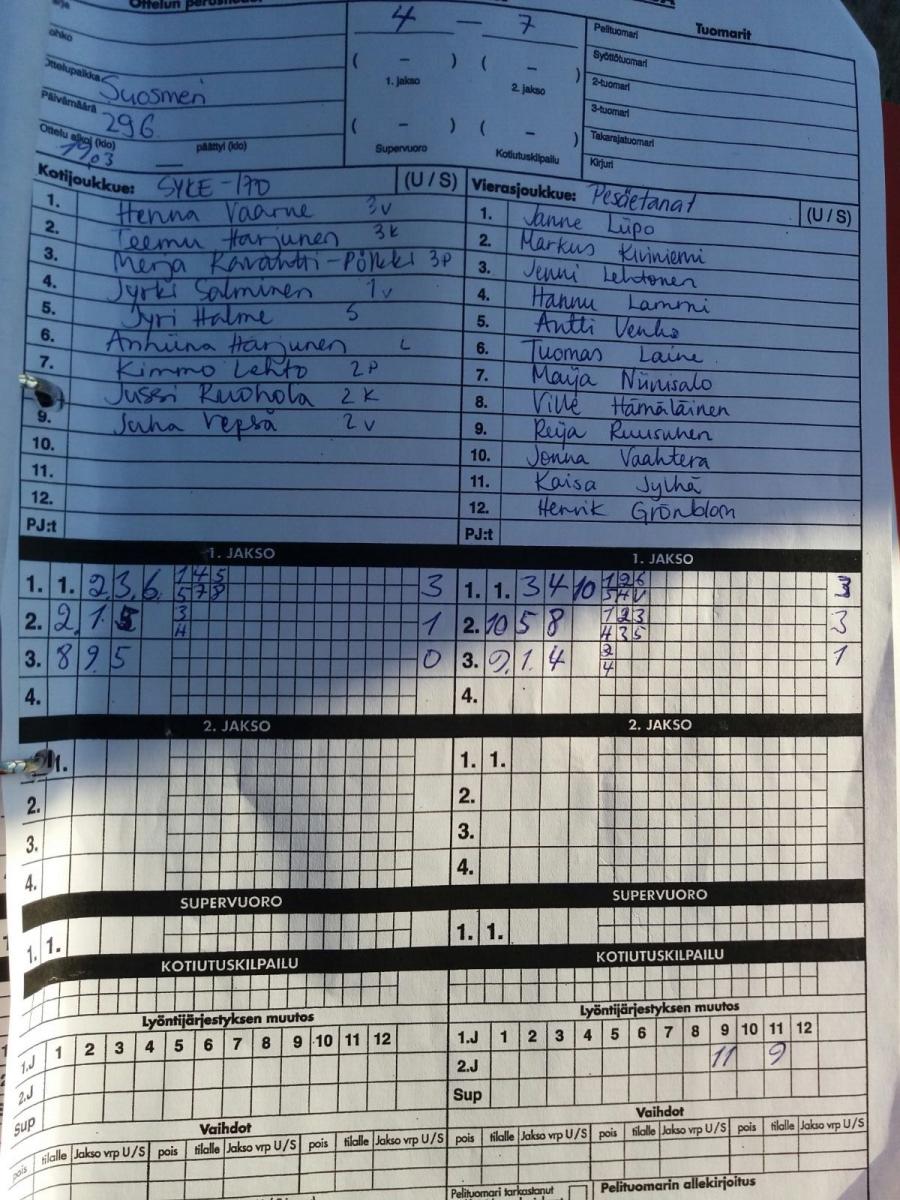 Ottelun perustiedot
4 — 7
( – ) ( – )
1. jakso 2. jakso
( – ) ( – )
Supervuoro Kotiutuskilpailu
Tuomarit
Pelituomari
Syöttötuomari
2-tuomari
3-tuomari
Takarajatuomari
Kirjuri
Ottelupaikka Suosmeri
Päivämäärä 296
Ottelu alkoi (klo) 19.03 päättyi (klo)
Kotijoukkue: SYKE-170 (U / S)
1. Henna Vaarne 3v
2. Teemu Harjunen 3k
3. Merja Kavantti-Pölkki 3P
4. Jyrki Salminen 1v
5. Jyri Halme S
6. Anniina Harjunen L
7. Kimmo Lehto 2P
Jussi Ruohola 2K
9. Juha Vepsä 2v
10.
11.
12.
PJ:t
Vierasjoukkue: Pesäetanat (U / S)
1. Janne Liipo
2. Markus Kiviniemi
3. Jenni Lehtonen
4. Hannu Lammi
5. Antti Venho
6. Tuomas Laine
7. Maija Niinisalo
8. Ville Hämäläinen
9. Reija Ruusunen
10. Jonna Vaahtera
11. Kaisa Jylhä
12. Henrik Grönblom
PJ:t
1. JAKSO
1. 1. 2 3 6 1 4 5 3
5 7 8
2. 2 1 5 3 1
4
3. 8 9 5 0
4.
1. JAKSO
1. 1. 3 4 10 1 2 6 3
5 4 V
2. 10 5 8 1 2 3 3
4 3 5
3. 9 1 4 2 1
4
4.
2. JAKSO
1.
2.
3.
4.
2. JAKSO
1. 1.
2.
3.
4.
SUPERVUORO
1. 1.
SUPERVUORO
1. 1.
KOTIUTUSKILPAILU
KOTIUTUSKILPAILU
Lyöntijärjestyksen muutos
1.J 1 2 3 4 5 6 7 8 9 10 11 12
2.J
Sup
Lyöntijärjestyksen muutos
1.J 1 2 3 4 5 6 7 8 9 10 11 12
2.J 11 9
Sup
Vaihdot
pois tilalle Jakso vrp U/S pois tilalle Jakso vrp U/S pois tilalle Jakso vrp U/S
Vaihdot
pois tilalle Jakso vrp U/S pois tilalle Jakso vrp U/S pois tilalle Jakso vrp U/S
Pelituomari tarkastanut
Pelituomarin allekirjoitus